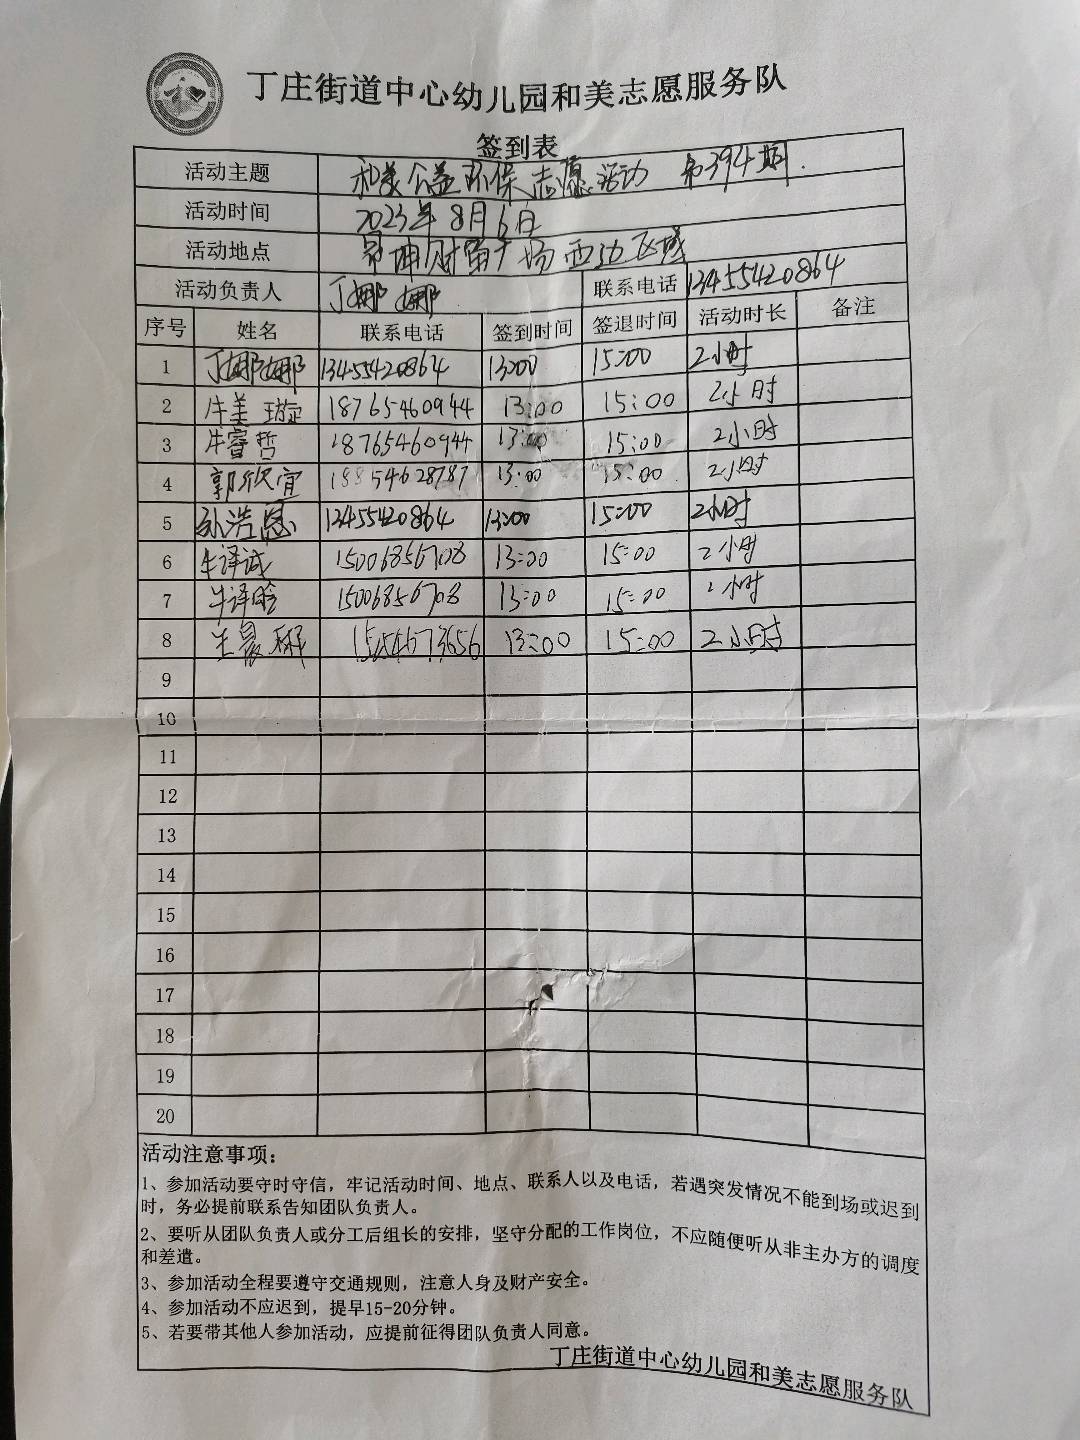 丁庄街道中心幼儿园和美志愿服务队
签到表
活动主题 和美公益环保志愿活动 第394期.
活动时间 2023年8月6日
活动地点 财富广场西边区域
活动负责人 丁娜娜 联系电话 13455420864
序号 姓名 联系电话 签到时间 签退时间 活动时长 备注
1 丁娜娜 13455420864 13:00 15:00 2小时
2 牛美璇 18765460944 13:00 15:00 2小时
3 牛睿哲 18765460944 13:00 15:00 2小时
4 郭欣宜 18854628787 13:00 15:00 2小时
5 孙浩恩 13455420864 13:00 15:00 2小时
6 牛译诚 15006856708 13:00 15:00 2小时
7 牛译晗 15006856708 13:00 15:00 2小时
8 13:00 15:00 2小时
9
10
11
12
13
14
15
16
17
18
19
20
活动注意事项：
1、参加活动要守时守信，牢记活动时间、地点、联系人以及电话，若遇突发情况不能到场或迟到
时，务必提前联系告知团队负责人。
2、要听从团队负责人或分工后组长的安排，坚守分配的工作岗位，不应随便听从非主办方的调度
和差遣。
3、参加活动全程要遵守交通规则，注意人身及财产安全。
4、参加活动不应迟到，提早15-20分钟。
5、若要带其他人参加活动，应提前征得团队负责人同意。
丁庄街道中心幼儿园和美志愿服务队